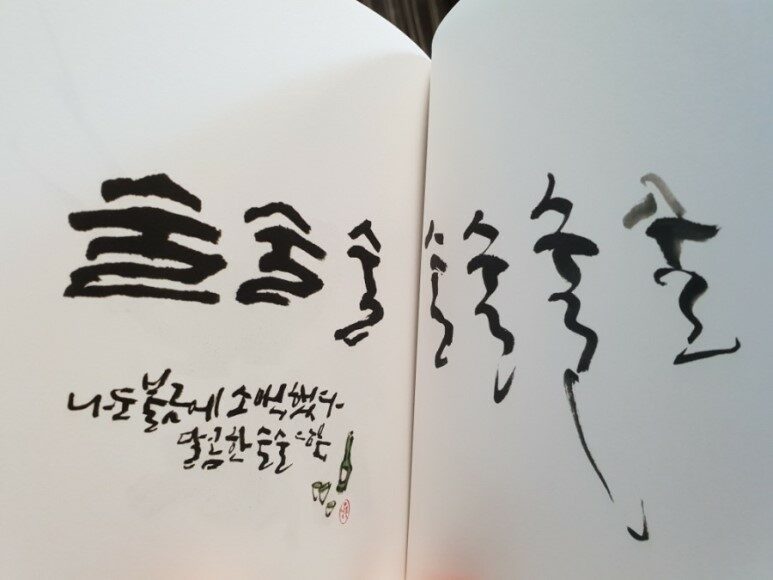 술 술 술 술 술 술 술
나는 불금에 소맥했다.
달콤한 술술~함